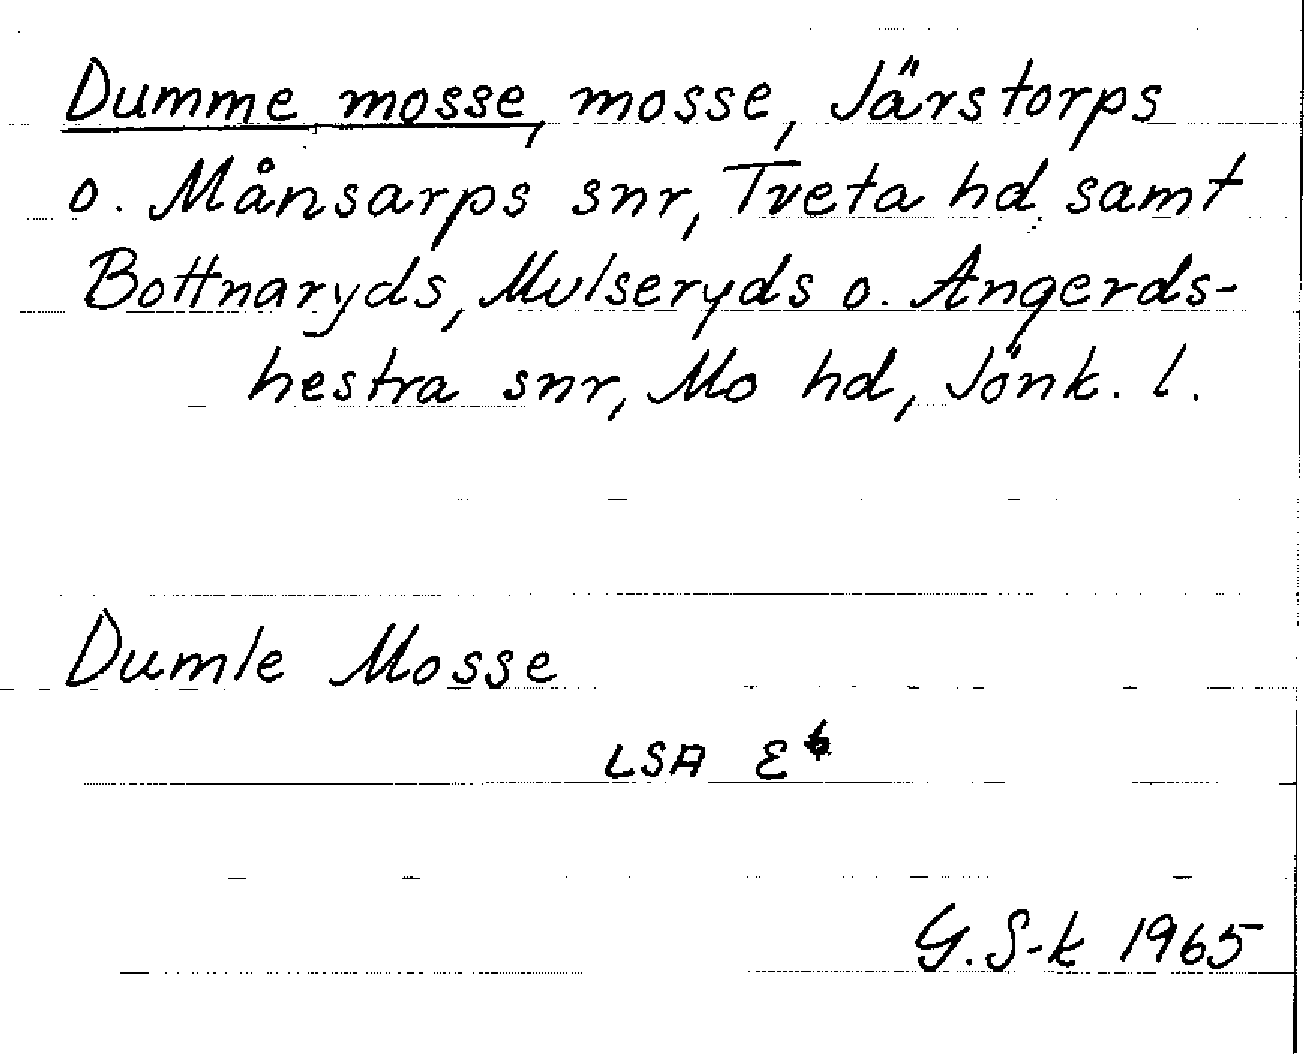 Dumme mosse, mosse, Järstorps
o. Månsarps snr, Tveta hd samt
Bottnaryds, Mulseryds o. Angerds-
hestra snr, Mo hd, Jönk. l.
Dumle Mosse
LSA E⁶
G. S-k 1965